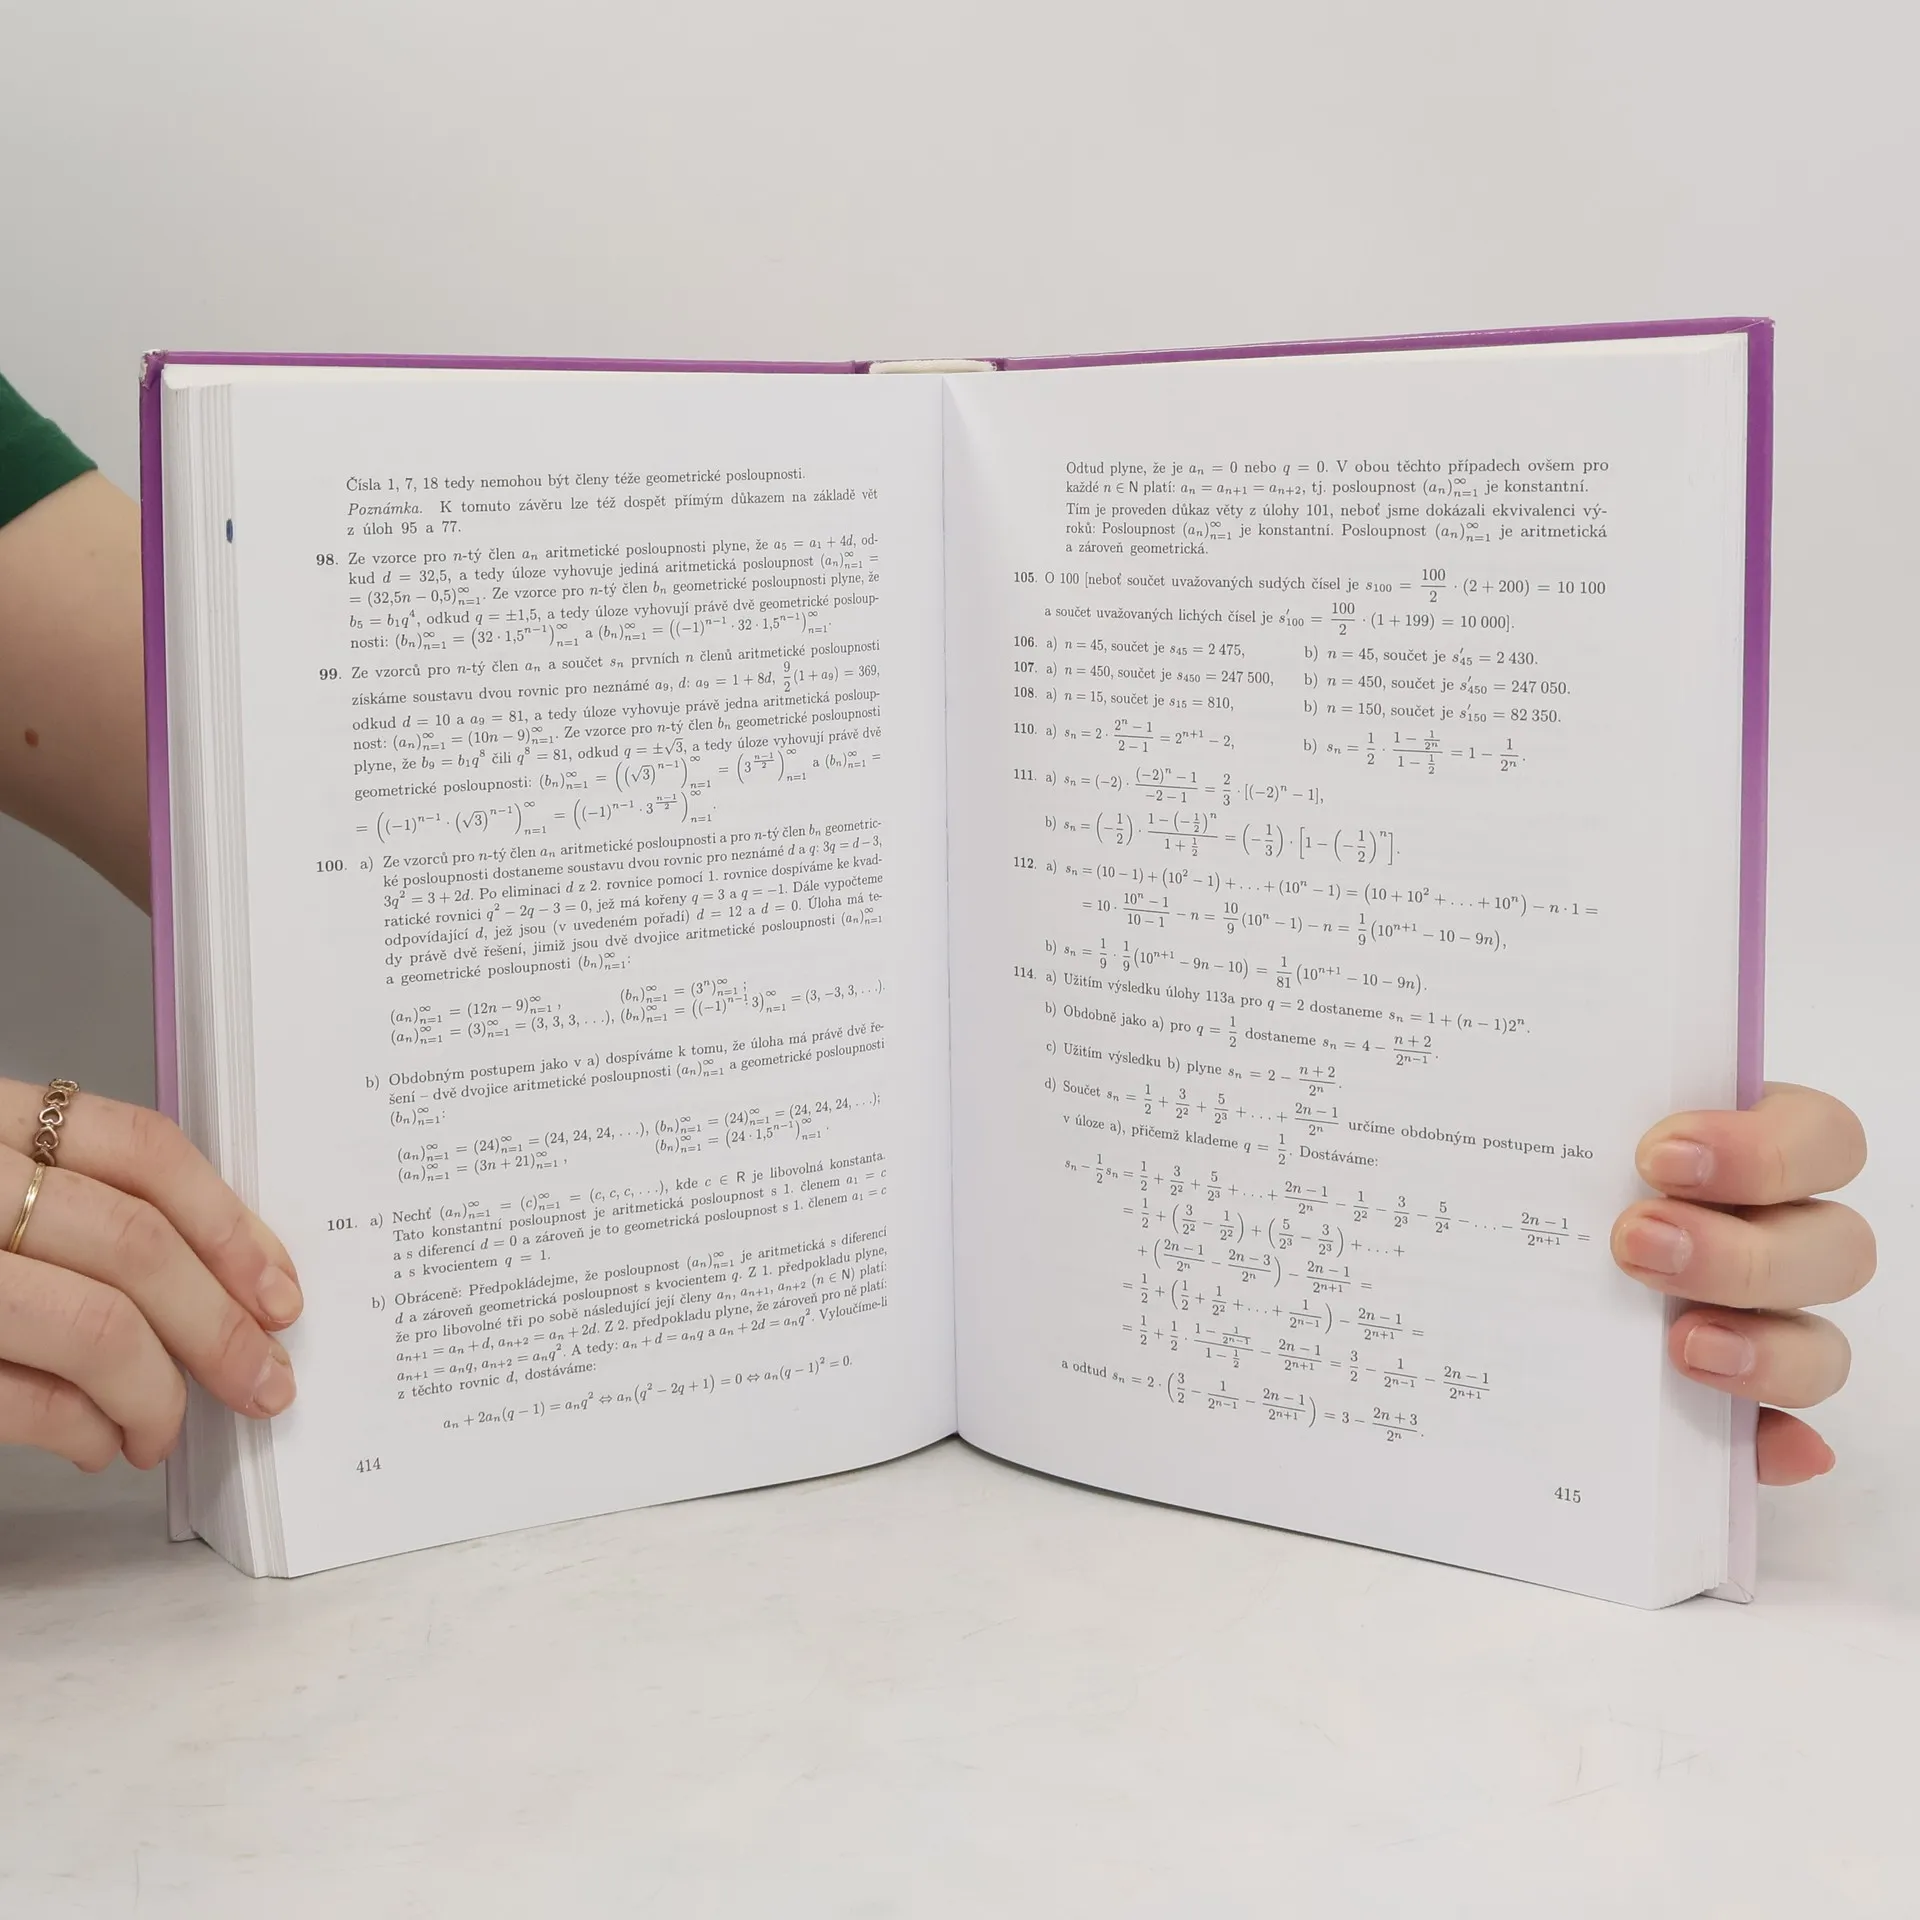 Čísla 1, 7, 18 tedy nemohou být členy téže geometrické posloupnosti.
Poznámka. K tomuto závěru lze též dospět přímým důkazem na základě vět
z úloh 95 a 77.
98. Ze vzorce pro n-tý člen aₙ aritmetické posloupnosti plyne, že a₅ = a₁ + 4d, od-
kud d = 32,5, a tedy úloze vyhovuje jediná aritmetická posloupnost (aₙ)_{n=1}^∞ =
= (32,5n − 0,5)_{n=1}^∞. Ze vzorce pro n-tý člen bₙ geometrické posloupnosti plyne, že
b₅ = b₁q⁴, odkud q = ±1,5, a tedy úloze vyhovují právě dvě geometrické posloup-
nosti: (bₙ)_{n=1}^∞ = (32 · 1,5^{n−1})_{n=1}^∞ a (bₙ)_{n=1}^∞ = ((−1)^{n−1} · 32 · 1,5^{n−1})_{n=1}^∞.
99. Ze vzorců pro n-tý člen aₙ a součet sₙ prvních n členů aritmetické posloupnosti
získáme soustavu dvou rovnic pro neznámé a₉, d: a₉ = 1 + 8d, 9/2 (1 + a₉) = 369,
odkud d = 10 a a₉ = 81, a tedy úloze vyhovuje právě jedna aritmetická posloup-
nost: (aₙ)_{n=1}^∞ = (10n − 9)_{n=1}^∞. Ze vzorce pro n-tý člen bₙ geometrické posloupnosti
plyne, že b₉ = b₁q⁸ čili q⁸ = 81, odkud q = ±√3, a tedy úloze vyhovují právě dvě
geometrické posloupnosti: (bₙ)_{n=1}^∞ = ((√3)^{n−1})_{n=1}^∞ = (3^{(n−1)/2})_{n=1}^∞ a (bₙ)_{n=1}^∞ =
= ((−1)^{n−1} · (√3)^{n−1})_{n=1}^∞ = ((−1)^{n−1} · 3^{(n−1)/2})_{n=1}^∞.
100. a) Ze vzorců pro n-tý člen aₙ aritmetické posloupnosti a pro n-tý člen bₙ geometric-
ké posloupnosti dostaneme soustavu dvou rovnic pro neznámé d a q: 3q = d − 3,
3q² = 3 + 2d. Po eliminaci d z 2. rovnice pomocí 1. rovnice dospíváme ke kvad-
ratické rovnici q² − 2q − 3 = 0, jež má kořeny q = 3 a q = −1. Dále vypočteme
odpovídající d, jež jsou (v uvedeném pořadí) d = 12 a d = 0. Úloha má te-
dy právě dvě řešení, jimiž jsou dvě dvojice aritmetické posloupnosti (aₙ)_{n=1}^∞
a geometrické posloupnosti (bₙ)_{n=1}^∞:
(aₙ)_{n=1}^∞ = (12n − 9)_{n=1}^∞, (bₙ)_{n=1}^∞ = (3ⁿ)_{n=1}^∞;
(aₙ)_{n=1}^∞ = (3)_{n=1}^∞ = (3, 3, 3, ...), (bₙ)_{n=1}^∞ = ((−1)^{n−1} · 3)_{n=1}^∞ = (3, −3, 3, ...).
b) Obdobným postupem jako v a) dospíváme k tomu, že úloha má právě dvě ře-
šení – dvě dvojice aritmetické posloupnosti (aₙ)_{n=1}^∞ a geometrické posloupnosti
(bₙ)_{n=1}^∞:
(aₙ)_{n=1}^∞ = (24)_{n=1}^∞ = (24, 24, 24, ...), (bₙ)_{n=1}^∞ = (24)_{n=1}^∞ = (24, 24, 24, ...);
(aₙ)_{n=1}^∞ = (3n + 21)_{n=1}^∞, (bₙ)_{n=1}^∞ = (24 · 1,5^{n−1})_{n=1}^∞.
101. a) Nechť (aₙ)_{n=1}^∞ = (c)_{n=1}^∞ = (c, c, c, ...), kde c ∈ R je libovolná konstanta.
Tato konstantní posloupnost je aritmetická posloupnost s 1. členem a₁ = c
a s diferencí d = 0 a zároveň je to geometrická posloupnost s 1. členem a₁ = c
a s kvocientem q = 1.
b) Obráceně: Předpokládejme, že posloupnost (aₙ)_{n=1}^∞ je aritmetická s diferencí
d a zároveň geometrická posloupnost s kvocientem q. Z 1. předpokladu plyne,
že pro libovolné tři po sobě následující její členy aₙ, aₙ₊₁, aₙ₊₂ (n ∈ N) platí:
aₙ₊₁ = aₙ + d, aₙ₊₂ = aₙ + 2d. Z 2. předpokladu plyne, že zároveň pro ně platí:
aₙ₊₁ = aₙq, aₙ₊₂ = aₙq². A tedy: aₙ + d = aₙq a aₙ + 2d = aₙq². Vyloučíme-li
z těchto rovnic d, dostáváme:
aₙ + 2aₙ(q − 1) = aₙq² ⇔ aₙ(q² − 2q + 1) = 0 ⇔ aₙ(q − 1)² = 0.
414
Odtud plyne, že je aₙ = 0 nebo q = 0. V obou těchto případech ovšem pro
každé n ∈ N platí: aₙ = aₙ₊₁ = aₙ₊₂, tj. posloupnost (aₙ)_{n=1}^∞ je konstantní.
Tím je proveden důkaz věty z úlohy 101, neboť jsme dokázali ekvivalenci vý-
roků: Posloupnost (aₙ)_{n=1}^∞ je konstantní. Posloupnost (aₙ)_{n=1}^∞ je aritmetická
a zároveň geometrická.
105. O 100 [neboť součet uvažovaných sudých čísel je s₁₀₀ = 100/2 · (2 + 200) = 10 100
a součet uvažovaných lichých čísel je s′₁₀₀ = 100/2 · (1 + 199) = 10 000].
106. a) n = 45, součet je s₄₅ = 2 475, b) n = 45, součet je s′₄₅ = 2 430.
107. a) n = 450, součet je s₄₅₀ = 247 500, b) n = 450, součet je s′₄₅₀ = 247 050.
108. a) n = 15, součet je s₁₅ = 810, b) n = 150, součet je s′₁₅₀ = 82 350.
110. a) sₙ = 2 · (2ⁿ − 1)/(2 − 1) = 2ⁿ⁺¹ − 2, b) sₙ = 1/2 · (1 − 1/2ⁿ)/(1 − 1/2) = 1 − 1/2ⁿ.
111. a) sₙ = (−2) · ((−2)ⁿ − 1)/(−2 − 1) = 2/3 · [(−2)ⁿ − 1],
b) sₙ = (−1/2) · (1 − (−1/2)ⁿ)/(1 + 1/2) = (−1/3) · [1 − (−1/2)ⁿ].
112. a) sₙ = (10 − 1) + (10² − 1) + ... + (10ⁿ − 1) = (10 + 10² + ... + 10ⁿ) − n · 1 =
= 10 · (10ⁿ − 1)/(10 − 1) − n = 10/9 (10ⁿ − 1) − n = 1/9 (10ⁿ⁺¹ − 10 − 9n),
b) sₙ = 1/9 · 1/9 (10ⁿ⁺¹ − 9n − 10) = 1/81 (10ⁿ⁺¹ − 10 − 9n).
114. a) Užitím výsledku úlohy 113a pro q = 2 dostaneme sₙ = 1 + (n − 1)2ⁿ.
b) Obdobně jako a) pro q = 1/2 dostaneme sₙ = 4 − (n + 2)/2ⁿ⁻¹.
c) Užitím výsledku b) plyne sₙ = 2 − (n + 2)/2ⁿ.
d) Součet sₙ = 1/2 + 3/2² + 5/2³ + ... + (2n − 1)/2ⁿ určíme obdobným postupem jako
v úloze a), přičemž klademe q = 1/2. Dostáváme:
sₙ − 1/2 sₙ = 1/2 + 3/2² + 5/2³ + ... + (2n − 1)/2ⁿ − 1/2² − 3/2³ − 5/2⁴ − ... − (2n − 1)/2ⁿ⁺¹ =
= 1/2 + (3/2² − 1/2²) + (5/2³ − 3/2³) + ... +
+ ((2n − 1)/2ⁿ − (2n − 3)/2ⁿ) − (2n − 1)/2ⁿ⁺¹ =
= 1/2 + (1/2 + 1/2² + ... + 1/2ⁿ⁻¹) − (2n − 1)/2ⁿ⁺¹ =
= 1/2 + 1/2 · (1 − 1/2ⁿ⁻¹)/(1 − 1/2) − (2n − 1)/2ⁿ⁺¹ = 3/2 − 1/2ⁿ⁻¹ − (2n − 1)/2ⁿ⁺¹
a odtud sₙ = 2 · (3/2 − 1/2ⁿ⁻¹ − (2n − 1)/2ⁿ⁺¹) = 3 − (2n + 3)/2ⁿ.
415